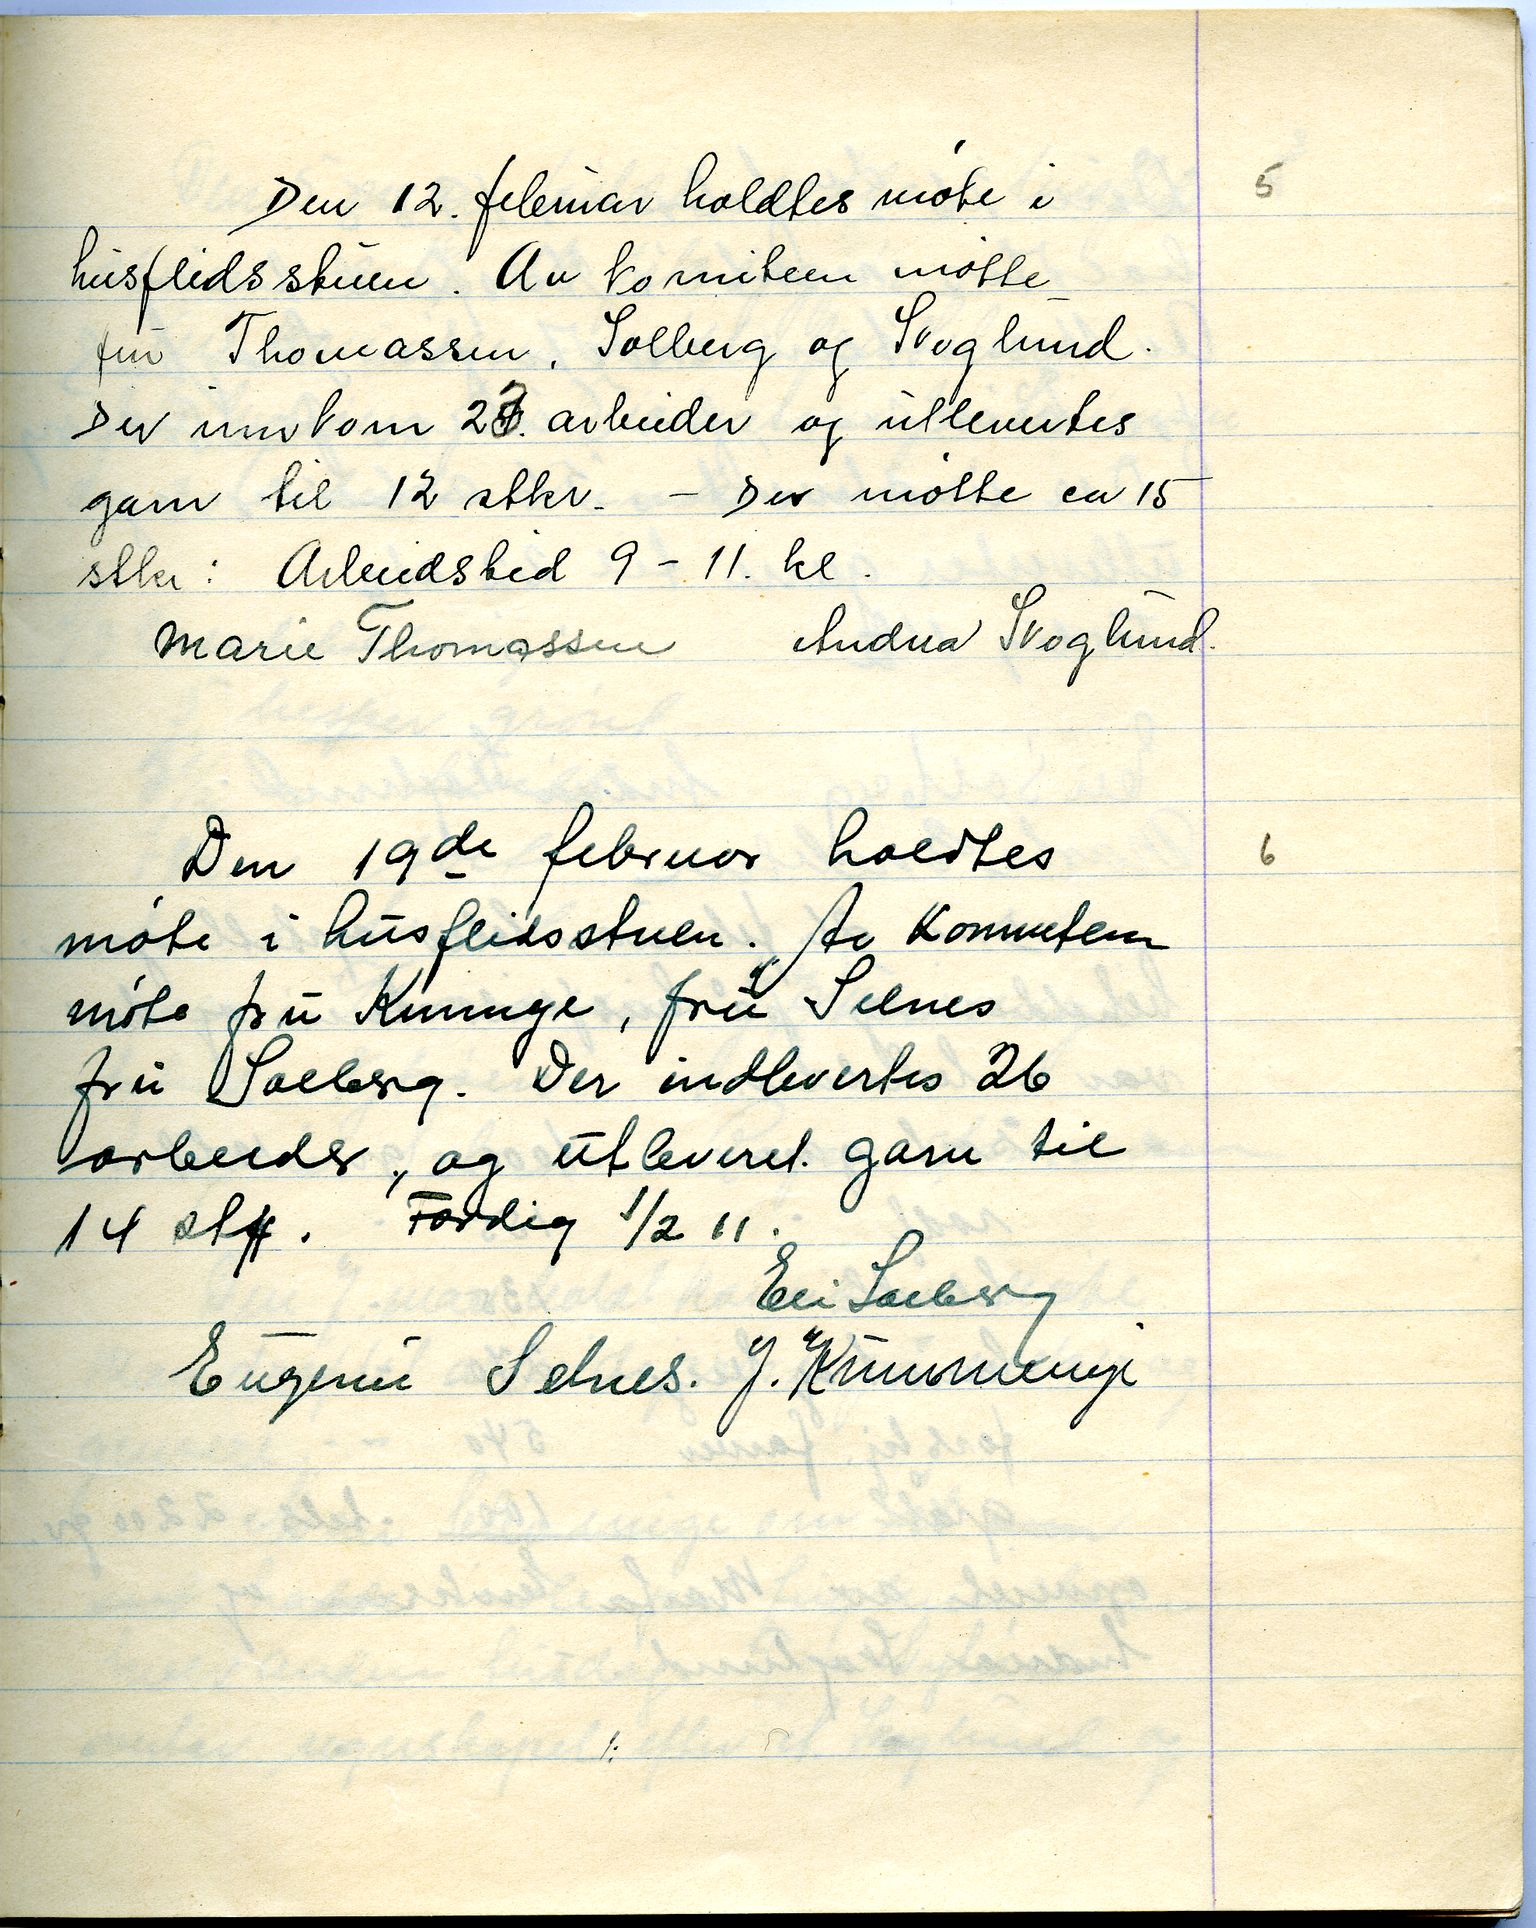 Den 12. februar holdtes møte i
5
husflidsstuen. Av komiteen møtte
fru Thomassen, Solberg og Skoglund.
Der innkom 23 arbeider og utlevertes
garn til 12 stkr. – Der møtte ca 15
stkr: Arbeidstid 9 – 11. kl.
Marie Thomassen Andrea Skoglund.
Den 19de februar holdtes
6
møte i husflidsstuen. Av Kommiteen
møte fru Kummeje, fru Selnes
fru Solberg. Der indlevertes 26
arbeider, og utleveret garn til
14 stk. Færdig 1/2 11.
Eli Solberg
Eugenie Selnes. J. Kummeneje